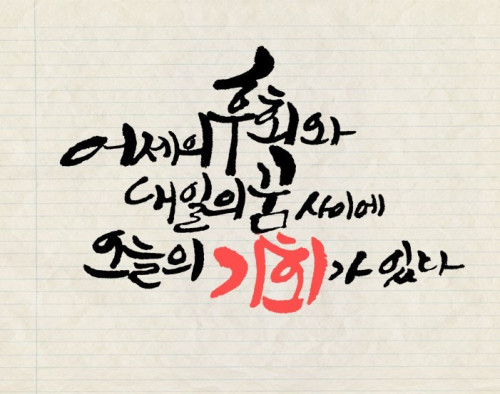 어제의 후회와
내일의 꿈 사이에
오늘의 기회가 있다